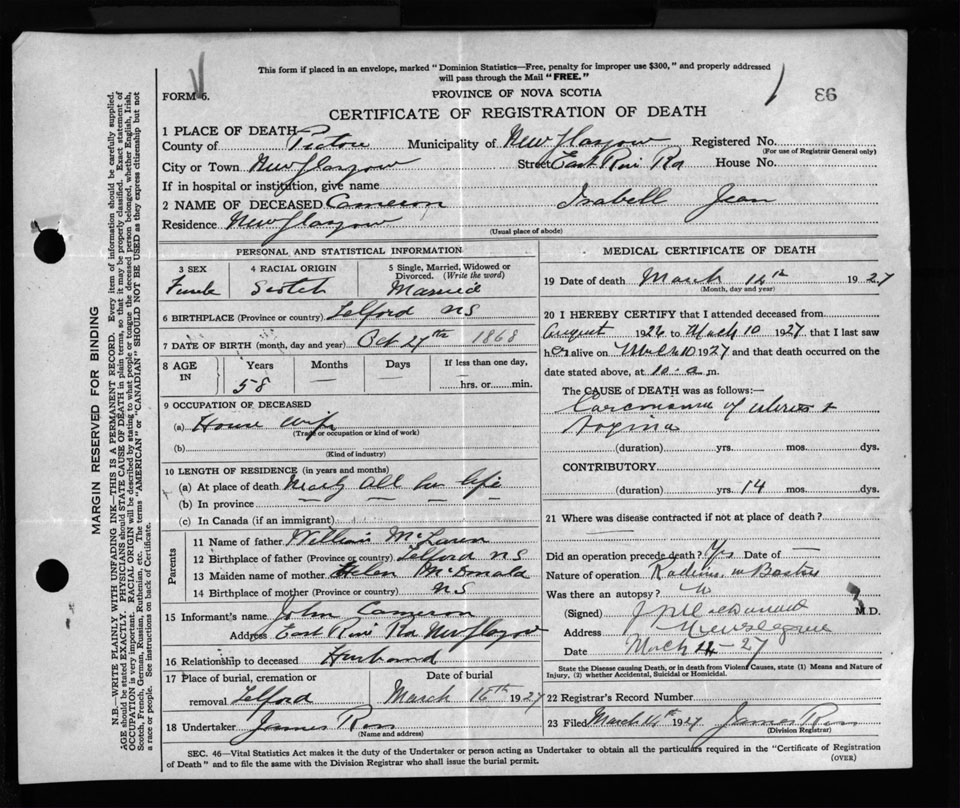 This form if placed in an envelope, marked "Dominion Statistics—Free, penalty for improper use $300," and properly addressed
will pass through the Mail "FREE."
FORM 6.
PROVINCE OF NOVA SCOTIA
CERTIFICATE OF REGISTRATION OF DEATH
93
MARGIN RESERVED FOR BINDING
N.B.—WRITE PLAINLY WITH UNFADING INK—THIS IS A PERMANENT RECORD. Every item of information should be carefully supplied.
AGE should be stated EXACTLY. PHYSICIANS should STATE CAUSE OF DEATH in plain terms, so that it may be properly classified. Exact statement of
OCCUPATION is very important. RACIAL ORIGIN will be described by stating to what people or tongue the deceased person belonged, whether English, Irish,
Scotch, French, German, Russian, Ruthenian, etc. The terms "AMERICAN" or "CANADIAN" SHOULD NOT BE USED as they express citizenship but not
a race or people. See instructions on back of Certificate.
1 PLACE OF DEATH
County of Pictou Municipality of New Glasgow Registered No.
(For use of Registrar General only)
City or Town New Glasgow Street East River Rd House No.
If in hospital or institution, give name
2 NAME OF DECEASED Cameron Isabell Jean
Residence New Glasgow
(Usual place of abode)
PERSONAL AND STATISTICAL INFORMATION
3 SEX Female
4 RACIAL ORIGIN Scotch
5 Single, Married, Widowed or Divorced. (Write the word) Married
6 BIRTHPLACE (Province or country) Telford NS
7 DATE OF BIRTH (month, day and year) Oct 27th 1868
8 AGE IN Years Months Days If less than one day,
58 — — — hrs. or min.
9 OCCUPATION OF DECEASED
(a) House wife
(Trade or occupation or kind of work)
(b)
(Kind of industry)
10 LENGTH OF RESIDENCE (in years and months)
(a) At place of death Nearly all her life
(b) In province
(c) In Canada (if an immigrant)
Parents
11 Name of father William McLaren
12 Birthplace of father (Province or country) Telford NS
13 Maiden name of mother Helen McDonald
14 Birthplace of mother (Province or country) NS
15 Informant's name John Cameron
Address East River Rd New Glasgow
16 Relationship to deceased Husband
17 Place of burial, cremation or removal Telford
Date of burial March 16th 1927
18 Undertaker James
(Name and address)
MEDICAL CERTIFICATE OF DEATH
19 Date of death March 14th 1927
(Month, day and year)
20 I HEREBY CERTIFY that I attended deceased from
August 1926 to March 10 1927 that I last saw
her alive on March 10 1927 and that death occurred on the
date stated above, at 10 a.m.
The CAUSE of DEATH was as follows:—
Carcinoma of uterus &
Vagina
(duration) yrs. mos. dys.
CONTRIBUTORY
(duration) yrs. 14 mos. dys.
21 Where was disease contracted if not at place of death?
Did an operation precede death? Yes Date of —
Nature of operation Radium in Boston
Was there an autopsy? No
(Signed) M.D.
Address New Glasgow
Date March 14-27
State the Disease causing Death, or in death from Violent Causes, state (1) Means and Nature of
Injury, (2) whether Accidental, Suicidal or Homicidal.
22 Registrar's Record Number
23 Filed March 14th 1927 James
(Division Registrar)
SEC. 46—Vital Statistics Act makes it the duty of the Undertaker or person acting as Undertaker to obtain all the particulars required in the "Certificate of Registration
of Death" and to file the same with the Division Registrar who shall issue the burial permit.
(OVER)